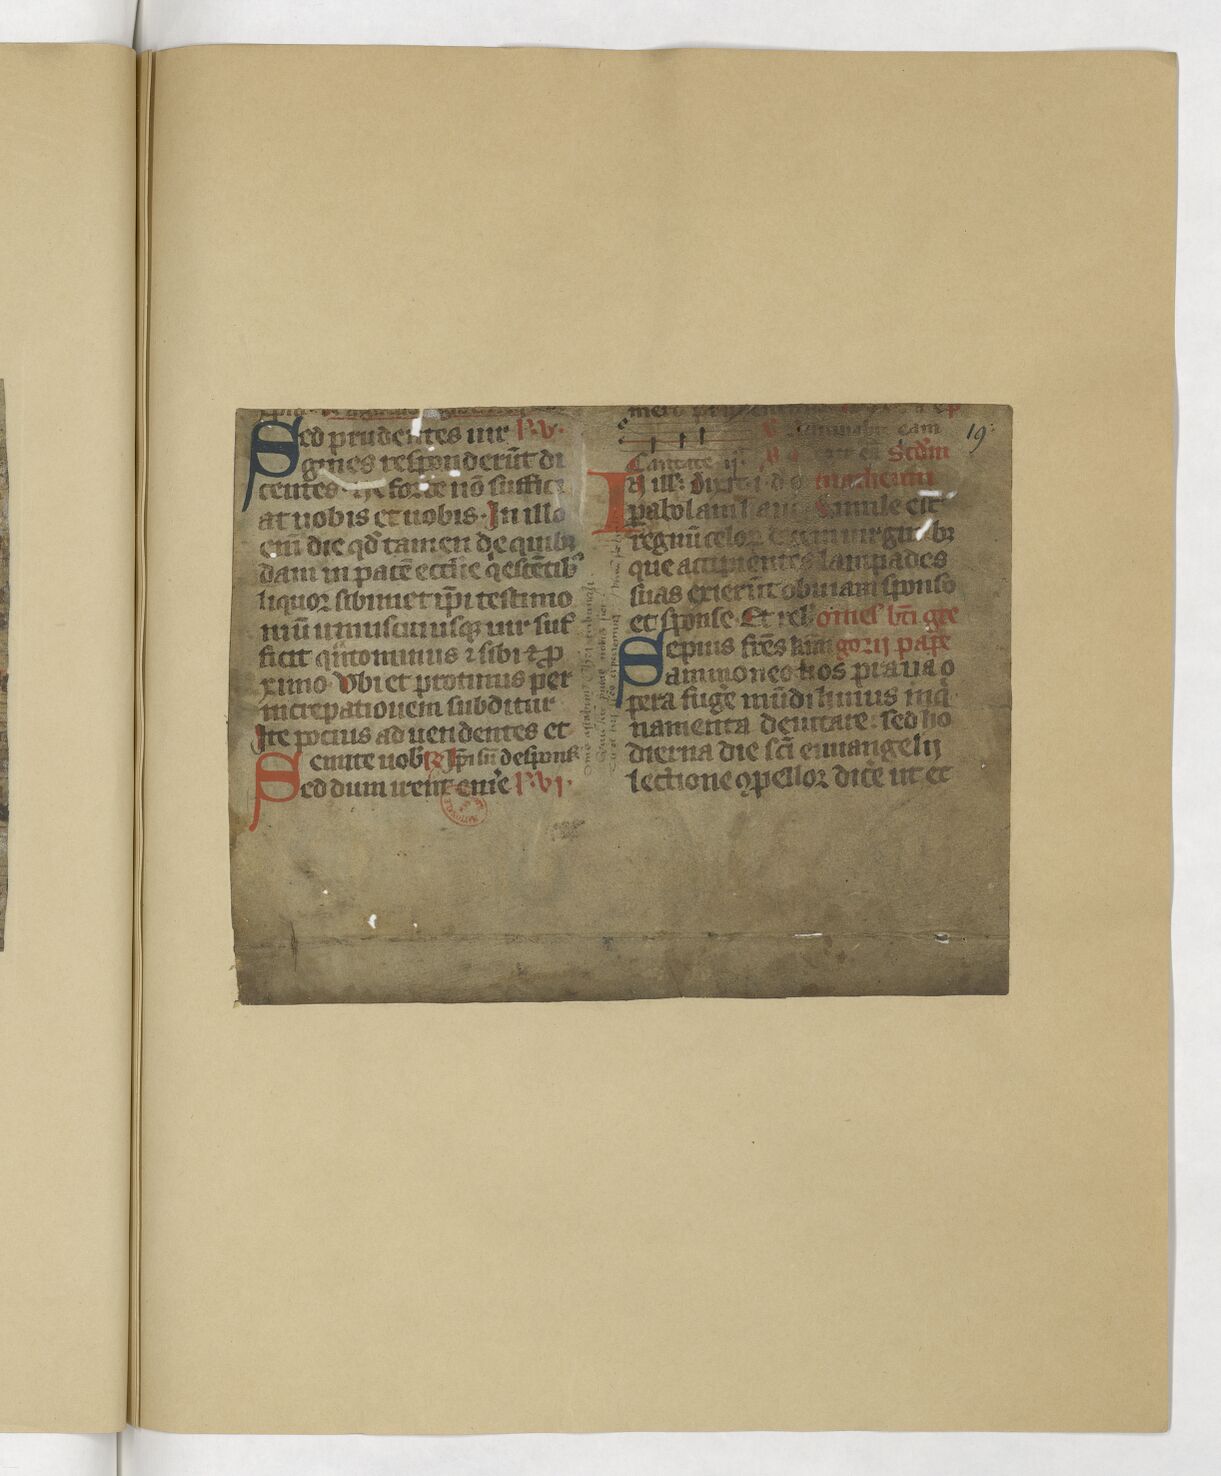 Sed prudentes uir l'. v.
gines responderūt di
centes. ne forte nō suffici
at uobis et uobis. In illo
eni die qd tamen de quib
dam in pace ecclie qescētib
liquor sibimet ipi testimo
niū unuscuiusq; uir suf
ficit qntominus ⁊ sibi ⁊ p
ximo. Vbi et protinus per
increpationem subditur
Ite pocius ad uendentes et
emite uob R Ipi sū despons
Sed dum irent emē l'. vi.
19
eam
Cantate ij. scdm
In ill. dixit i. d. s. matheum
pabolam hanc Simile est
regnū celoꝝ decem uirginibꝫ
que accipientes lampades
suas exierūt obuiam sponso
et sponse. Et rel. omel' bti gre
Sepius frēs kmi gorii pape
ammoneo uos praua o
pera fugē mūdi huius inq
namenta deuitare: sed ho
dierna die scī euuangelij
lectione ꝯpellor dicē ut et